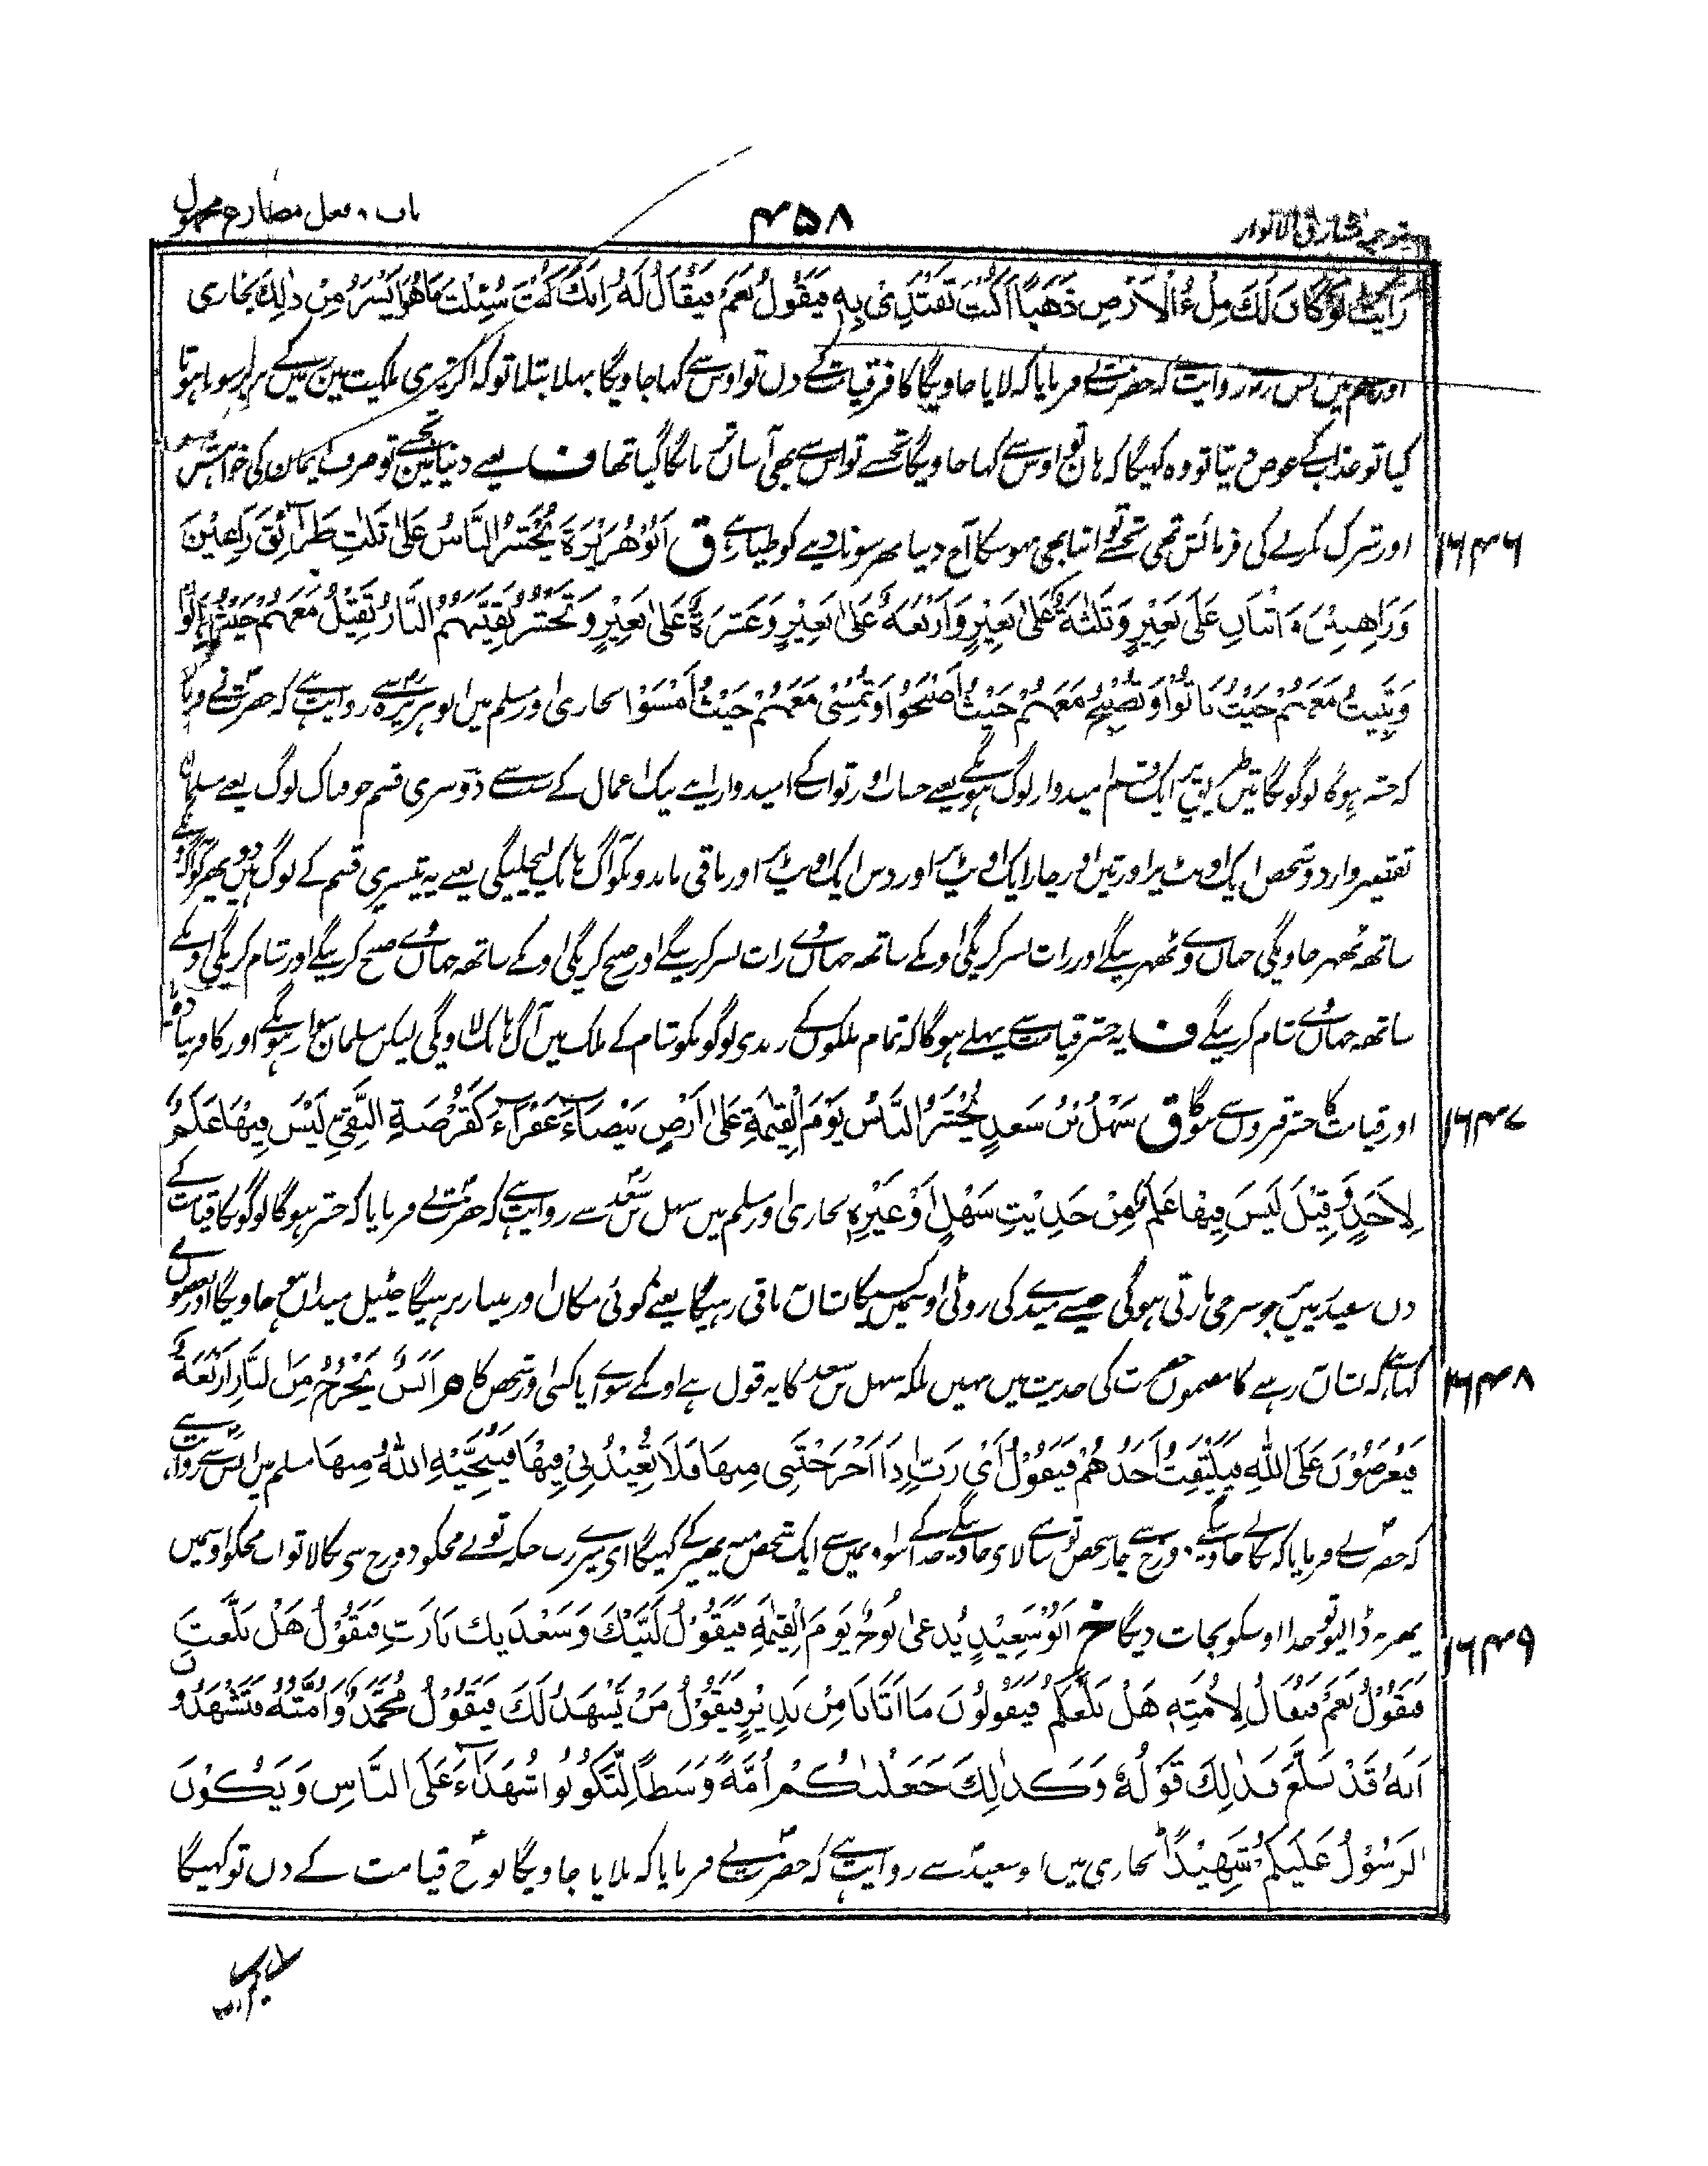 ترجمہ مشارق الانوار ۴۵۸ باب ۰ فعل مضارع مجہول
رَاَیْتَ لَوْ کَانَ لَكَ مِلْءُ الْاَرْضِ ذَهَبًا اَكُنْتَ تَفْتَدِیْ بِهٖ فَیَقُوْلُ نَعَمْ فَیُقَالُ لَهٗ اِنَّكَ كُنْتَ سُئِلْتَ مَا هُوَ اَیْسَرُ مِنْ ذٰلِكَ بخاری
اور مسلم میں انس رض سے روایت ہے کہ حضرت نے فرمایا کہ لایا جاویگا کافر قیامت کے دن تو اوس سے کہا جاویگا بھلا بتلا تو کہ اگر تیری ملکیت میں زمین کے برابر سونا ہوتا
کیا تو عذاب کے عوض دیتا تو وہ کہیگا کہ ہان تو اوس سے کہا جاویگا تجھسے تو اس سے بھی آسان تر مانگا گیا تھا ف یعنے دنیا میں تجھسے تو صرف ایمان کی خواہش
اور شرک نکرنے کی فرمائش تھی تجھسے تو اتنا بھی نہو سکا آج دنیا بھر سونا دینے کو طیار ہے ق اَبُوْ هُرَیْرَةَ یُحْشَرُ النَّاسُ عَلٰی ثَلٰثِ طَرَآئِقَ رَاغِبِیْنَ ۱۶۴۶
وَرَاهِبِیْنَ وَاثْنَانِ عَلٰی بَعِیْرٍ وَثَلٰثَةٌ عَلٰی بَعِیْرٍ وَاَرْبَعَةٌ عَلٰی بَعِیْرٍ وَعَشَرَةٌ عَلٰی بَعِیْرٍ وَتَحْشُرُ بَقِیَّتَهُمُ النَّارُ تَقِیْلُ مَعَهُمْ حَیْثُ قَالُوْا
وَتَبِیْتُ مَعَهُمْ حَیْثُ بَاتُوْا وَتُصْبِحُ مَعَهُمْ حَیْثُ اَصْبَحُوْا وَتُمْسِیْ مَعَهُمْ حَیْثُ اَمْسَوْا بخاری اور مسلم میں ابو ہریرہ رض سے روایت ہے کہ حضرت نے فرمایا
کہ حشر ہوگا لوگونکا تین طریق پر ایک قسم امیدوار لوگ ہونگے یعنے حساب اور ثواب کے امیدوار اپنے نیک اعمال کے سبب سے دوسری قسم خوفناک لوگ یعنے مسلمان
تقصیر وار دو شخص ایک اونٹ پر اور تین اور چار ایک اونٹ پر اور دس ایک اونٹ پر اور باقی ماندونکو آگ ہانک لیچلیگی یعنے یہ تیسری قسم کے لوگ ہیں دوپہر کو آگ اونکے
ساتھ ٹھہر جاویگی جہاں وے ٹھہرینگے اور رات بسر کریگی اونکے ساتھ جہاں وے رات بسر کرینگے اور صبح کریگی اونکے ساتھ جہاں وے صبح کرینگے اور شام کریگی اونکے
ساتھ جہاں وے شام کرینگے ف یہ حشر قیامت سے پہلے ہوگا کہ تمام ملکوں کے زندی لوگونکو شام کے ملک میں آگ ہانک لاویگی لیکن مسلمان سوار ہونگے اور کافر پیادہ
اور قیامت کا حشر قبروں سے ہوگا ق سَهْلُ بْنُ سَعْدٍ یُحْشَرُ النَّاسُ یَوْمَ الْقِیٰمَةِ عَلٰی اَرْضٍ بَیْضَآءَ عَفْرَآءَ كَقُرْصَةِ النَّقِیِّ لَیْسَ فِیْهَا عَلَمٌ ۱۶۴۷
لِاَحَدٍ وَقِیْلَ لَیْسَ فِیْهَا عَلَمٌ مِنْ حَدِیْثِ سَهْلٍ اَوْ غَیْرِهٖ بخاری اور مسلم میں سہل بن سعد رض سے روایت ہے کہ حضرت نے فرمایا کہ حشر ہوگا لوگونکا قیامت کے
دن سفید زمین پر جو سرخی مارتی ہوگی جیسے میدے کی روٹی اوسمیں کسیکا نشان باقی نرہیگا یعنے کوئی مکان اور مینار نرہیگا چٹیل میدان ہو جاویگا اور بعضوں نے
کہا ہے کہ نشان نرہنے کا مضمون حضرت کی حدیث میں نہیں بلکہ سہل بن سعد کا یہ قول ہے اونکے سوائے یا کسی اور شخص کا ه اَنَسٌ یُخْرَجُ مِنَ النَّارِ اَرْبَعَةٌ ۱۶۴۸
فَیُعْرَضُوْنَ عَلَی اللّٰهِ فَیَلْتَفِتُ اَحَدُهُمْ فَیَقُوْلُ اَیْ رَبِّ اِذْ اَخْرَجْتَنِیْ مِنْهَا فَلَا تُعِیْدُنِیْ فِیْهَا فَیُنْجِیْهِ اللّٰهُ مِنْهَا مسلم میں انس رض سے روایت ہے
کہ حضرت نے فرمایا کہ نکالے جاوینگے دوزخ سے چار شخص تو سامنے لائے جاوینگے خدا کے سو اونمیں سے ایک شخص منہ پھیر کے کہیگا ای میرے رب جبکہ تونے مجھکو دوزخ سی نکالا تو اب مجھکو اوسمیں
پھر نہ ڈالیو تو خدا اوسکو نجات دیگا خ اَبُوْ سَعِیْدٍ یُدْعٰی نُوْحٌ یَوْمَ الْقِیٰمَةِ فَیَقُوْلُ لَبَّیْكَ وَسَعْدَیْكَ یَا رَبِّ فَیَقُوْلُ هَلْ بَلَّغْتَ ۱۶۴۹
فَیَقُوْلُ نَعَمْ فَیُقَالُ لِاُمَّتِهٖ هَلْ بَلَّغَكُمْ فَیَقُوْلُوْنَ مَا اَتَانَا مِنْ نَذِیْرٍ فَیَقُوْلُ مَنْ یَّشْهَدُ لَكَ فَیَقُوْلُ مُحَمَّدٌ وَاُمَّتُهٗ فَتَشْهَدُوْنَ
اَنَّهٗ قَدْ بَلَّغَ فَذٰلِكَ قَوْلُهٗ وَكَذٰلِكَ جَعَلْنٰكُمْ اُمَّةً وَّسَطًا لِّتَكُوْنُوْا شُهَدَآءَ عَلَی النَّاسِ وَیَكُوْنَ
الرَّسُوْلُ عَلَیْكُمْ شَهِیْدًا بخاری میں ابو سعید رض سے روایت ہے کہ حضرت نے فرمایا کہ بلایا جاویگا نوح قیامت کے دن تو کہیگا